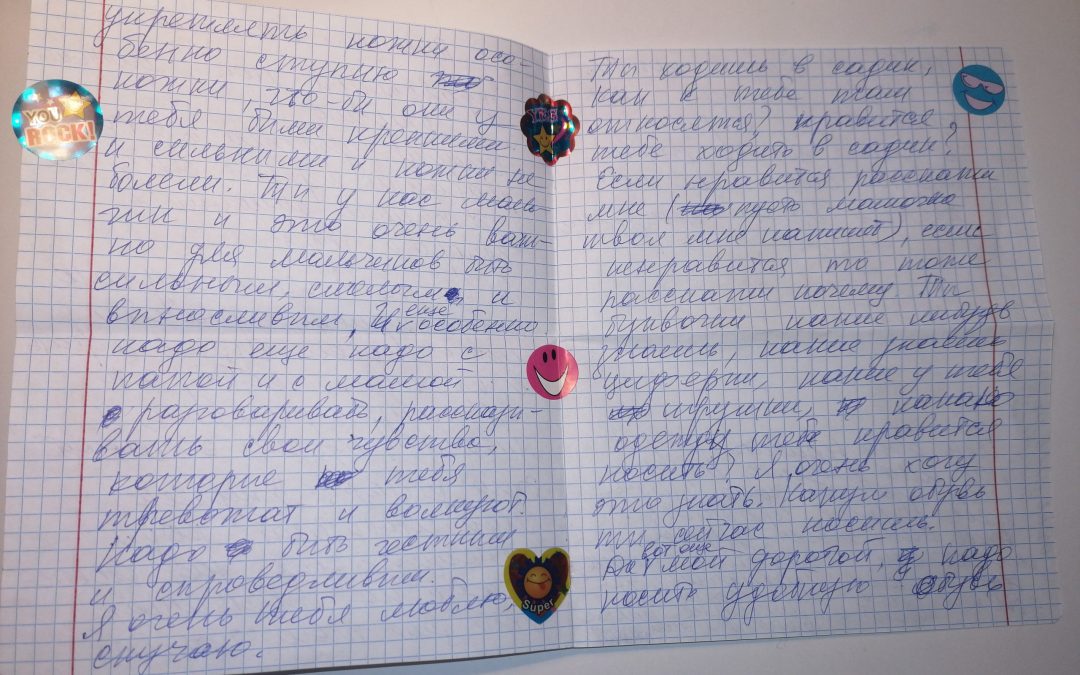 укреплять ножки осо-
бенно ступню
ножки, что-би они у
тебя были крепкими
и сильными и ножки не
болели. Ты у нас маль-
чик и это очень важ-
но для мальчиков быть
сильным, смелым и
выносливим, И еще особенно
надо еще надо с
папой и с мамой
разговаривать, расскази-
вать свои чувства,
которие тебя
тревожат и волнуют.
Надо быть честным
и справедливим.
Я очень тебя люблю,
скучаю.
Ты ходишь в садик,
как к тебе там
относятся? нравится
тебе ходить в садик?
Если нравится расскажи
мне (пусть мамочка
твоя мне напишет), если
ненравится то тоже
расскажи почему. Ты
буквочки какие нибудь
знаешь, какие знаешь
циферки, какие у тебя
игрушки, какаю
одежду тебе нравится
носить? Я очень хочу
это знать. Какую обувь
ти сейчас носишь.
вот еще
мой дорогой, надо
носить удобную обувь
YOU ROCK!
YES
Super